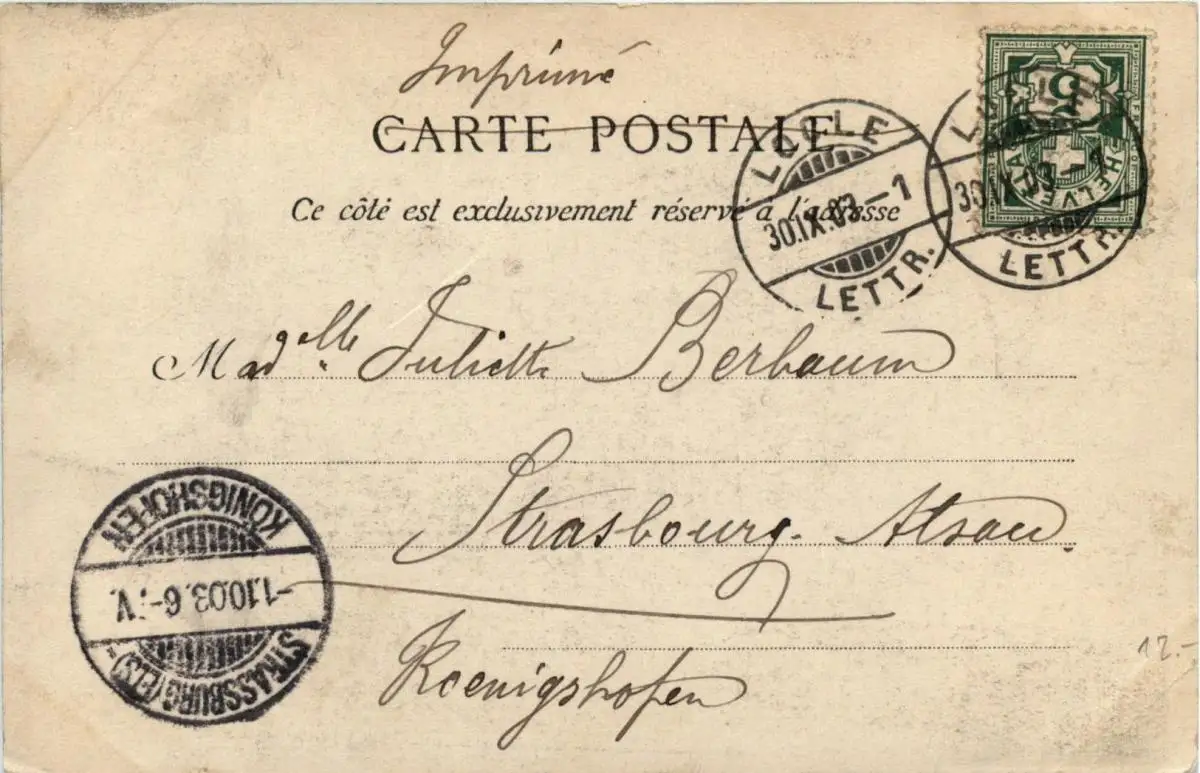 Imprimé
CARTE POSTALE
Ce côté est exclusivement réservé à l'adresse
5
HELVETIA
LOCLE
30.IX.03.–1
LETTR.
LOCLE
30.IX.03.–1
LETTR.
Madgelle Juliette Berbaum
Strasbourg.
Koenigshofen
STRASSBURG (ELS)
-1.10.03.6-7V.
KÖNIGSHOFEN
12.-